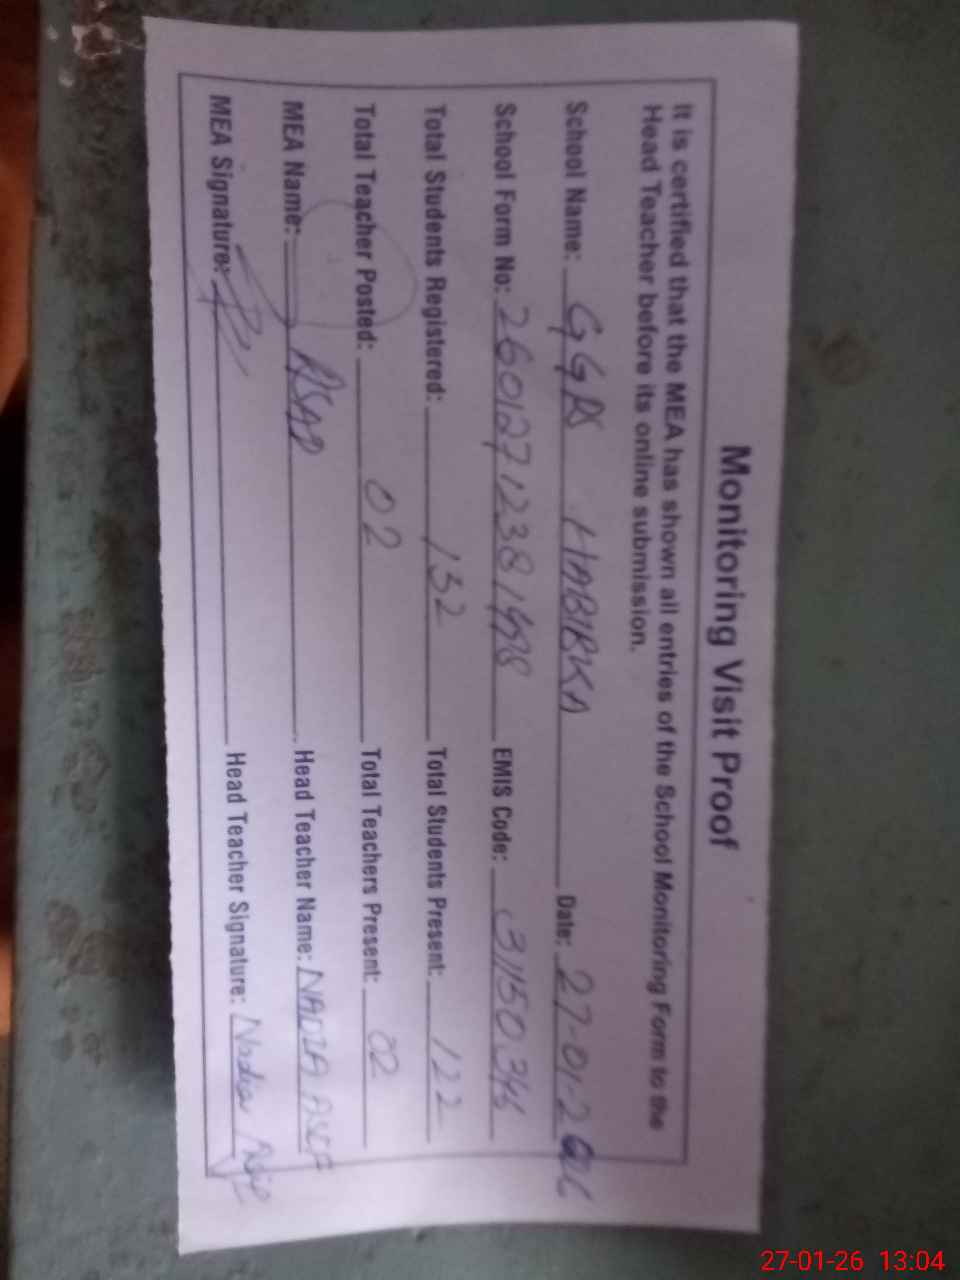 Monitoring Visit Proof
It is certified that the MEA has shown all entries of the School Monitoring Form to the
Head Teacher before its online submission.
School Name: GGPS HABIBKA Date: 27-01-2026
School Form No: 26012712381498 EMIS Code: 31150346
Total Students Registered: 132 Total Students Present: 122
Total Teacher Posted: 02 Total Teachers Present: 02
MEA Name: Head Teacher Name: NADIA ASIF
MEA Signature: Head Teacher Signature: Nadia Asif
27-01-26 13:04